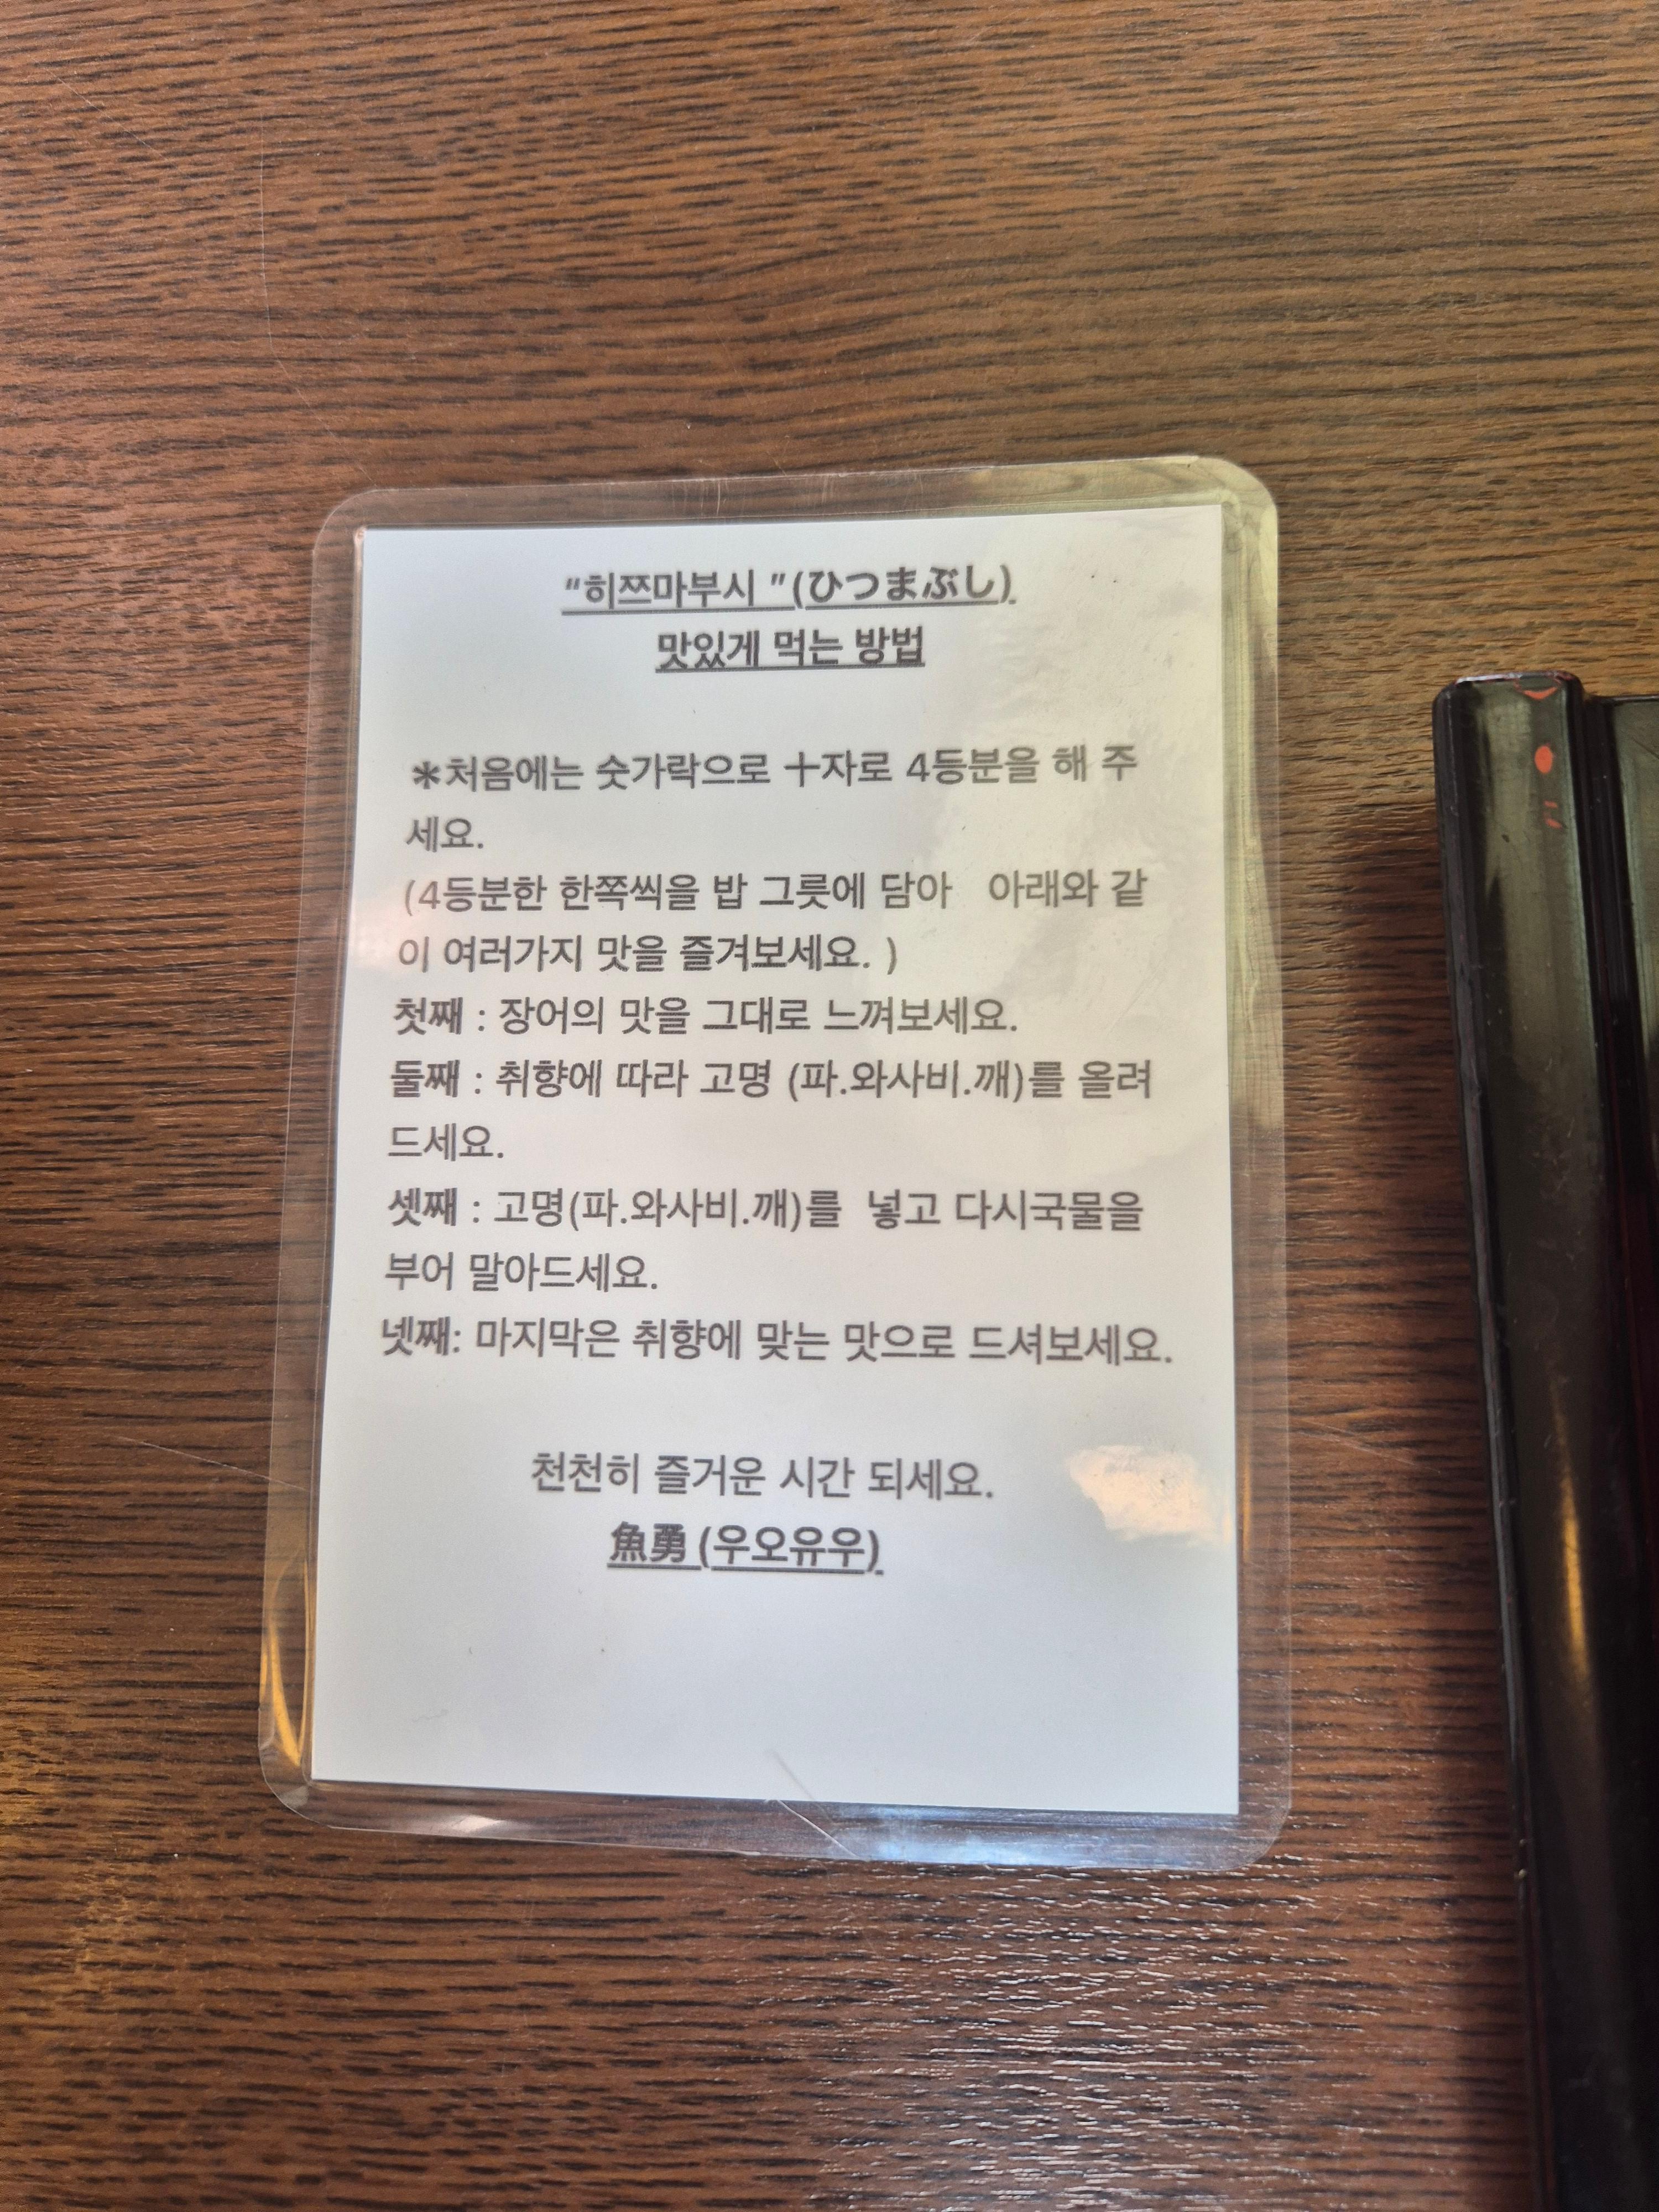 “히쯔마부시 ”(ひつまぶし)
맛있게 먹는 방법
*처음에는 숫가락으로 十자로 4등분을 해 주
세요.
(4등분한 한쪽씩을 밥 그릇에 담아   아래와 같
이 여러가지 맛을 즐겨보세요. )
첫째 : 장어의 맛을 그대로 느껴보세요.
둘째 : 취향에 따라 고명 (파.와사비.깨)를 올려
드세요.
셋째 : 고명(파.와사비.깨)를  넣고 다시국물을
부어 말아드세요.
넷째: 마지막은 취향에 맞는 맛으로 드셔보세요.
천천히 즐거운 시간 되세요.
魚勇 (우오유우)